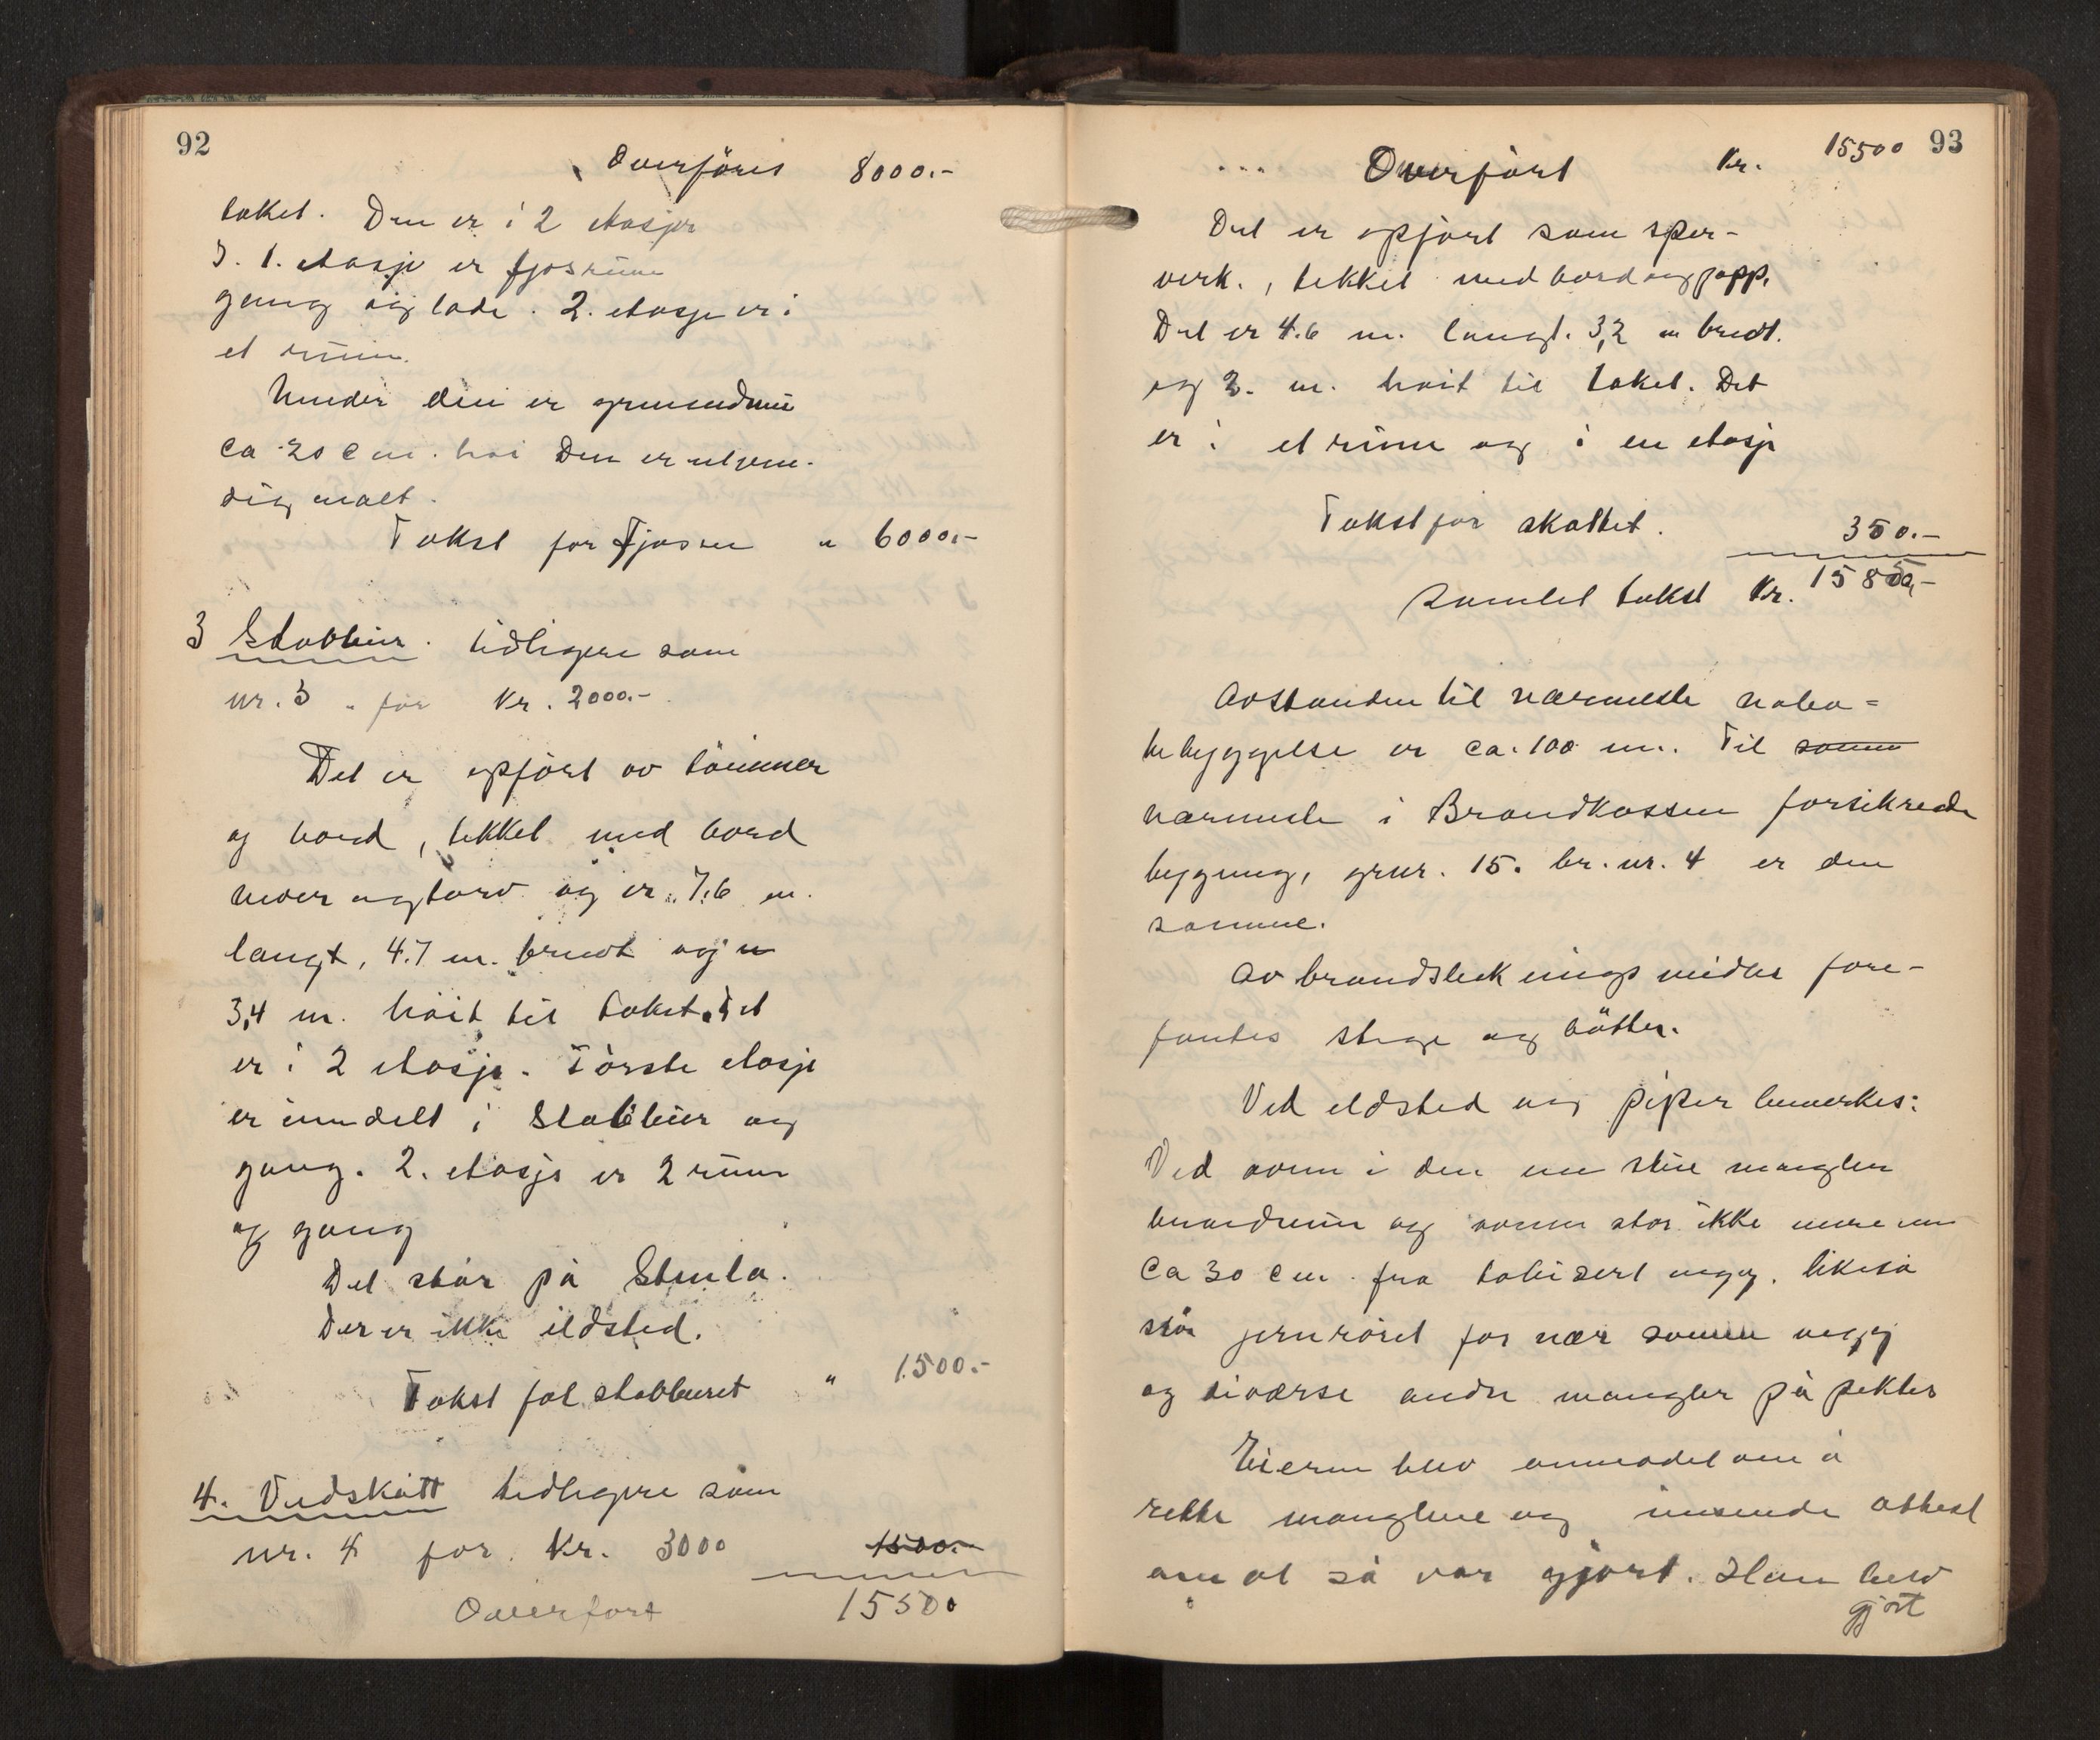 92
Overføres 8000.-
taket. Den er i 2 etasjer
I. 1. etasje er fjosrum
gang og lade. 2. etasje er i
et rum.
Under den er grundmur
ca 20 cm. høi Den er utven-
dig malt.
Takst for Fjøsen " 6000.-
3 Stabbur. tidligere som
nr. 3 " for Kr. 2000.-
Det er opført av tømmer
og bord, tekket med bord
never og torv og er 7,6 m.
langt, 4.7 m. bredt og
3,4 m. høit til taket. Det
er i 2 etasje. Første etasje
er inndelt i Stabbur og
gang. 2. etasje er 2 rum
og gang
Det står på Stenla.
Der er ikke ildsted.
Takst for stabburet " 1500.-
4. Vedskått tidligere som
nr. 4 for Kr. 3000 1500.-
Overført 15500
93
Overført Kr. 15500
Det er opført som sper-
verk., tekket med bord og papp.
Det er 4.6 m. langt. 3,2 m bredt.
og 2. m. høit til taket. Det
er i et rum og i en etasje
Takst for skåttet. 350.-
Samlet takst Kr. 15850,-
Avstanden til nærmeste nabo=
bebyggelse er ca. 100 m. Til samm
nærmeste i Brandkassen forsikrede
bygning, grnr. 15. br. nr. 4 er den
samme.
Av brandslukningsmidler fore-
fantes stige og bøtter.
Ved ildsted og piper bemerkes:
Ved ovnen i den ene stue mangler
brandmur og ovnen står ikke mere enn
ca 30 cm. fra tapisert vegg. likeså
står jernrøret for nær samme vegg
og diverse andre mangler på pekter
Eieren blev anmodet om å
rette manglene og innsende attest
om at så var gjort. Han blev
gjort